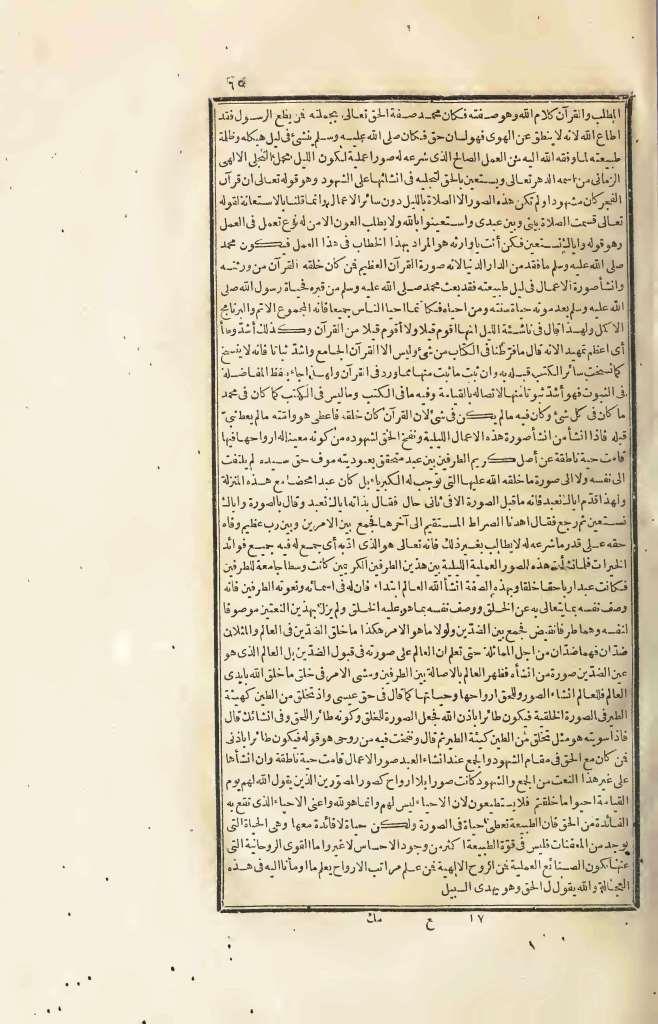 ٦٥
المطلب والقرآن كلام الله وهو صفته فكان محمد صفة الحق تعالى بجملته فمن يطع الرسول فقد
اطاع الله لانه لا ينطق عن الهوى فهو لسان حق فكان صلى الله عليه وسلم ينشئ فى ليل هيكله وظلمة
طبيعته لما وفقه الله اليه من العمل الصالح الذى شرعه له صورا عملية لكون الليل محل التجلى الالهى
الزمانى من اسمه الدهر تعالى ويستعين بالحق لتجليه فى انشائها على الشهود وهو قوله تعالى ان قرآن
الفجر كان مشهودا ولم تكن هذه الصور الا الصلاة بالليل دون سائر الاعمال وانما قلنا بالاستعانة لقوله
تعالى قسمت الصلاة بينى وبين عبدى واستعينوا بالله ولا يطلب العون الا من له نوع تعمل فى العمل
وهو قوله واياك نستعين فكن أنت يا وارثه هو المراد بهذا الخطاب فى هذا العمل فيكون محمد
صلى الله عليه وسلم ما فقد من الدار الدنيا لانه صورة القرآن العظيم فمن كان خلقه القرآن من ورثته
وانشأ صورة الاعمال فى ليل طبيعته فقد بعث محمد صلى الله عليه وسلم من قبره فحياة رسول الله صلى
الله عليه وسلم بعد موته حياة سنته ومن احياه فكأنما احيا الناس جميعا فانه المجموع الاتم والبرنامج
الاكمل ولهذا قال فى ناشئة الليل انها اقوم قيلا ولا أقوم قيلا من القرآن وكذلك أشد وطأ
أى اعظم تمهيدا لانه قال ما فرطنا فى الكتاب من شئ وليس الا القرآن الجامع واشد ثباتا فانه لا ينسخ
كما نسخت سائر الكتب قبله به وان ثبت ما ثبت منها مما ورد فى القرآن ولهذا جاء بلفظ المفاضلة
فى الثبوت فهو أشد ثبوتا منها لاتصاله بالقيامة وفيه ما فى الكتب وما ليس فى الكتب كما كان فى محمد
ما كان فى كل نبى وكان فيه ما لم يكن فى نبى لان القرآن كان خلقه فاعطى هو وامته ما لم يعط نبى
قبله فاذا انشأ من انشأ صورة هذه الاعمال الليلية ونفخ الحق لشهوده من كونه معينا له ارواحها فيها
قامت حية ناطقة عن أصل كريم الطرفين بين عبد متحقق بعبوديته موف حق سيده لم يلتفت
الى نفسه ولا الى صورة ما خلقه الله عليها التى توجب له الكبرياء بل كان عبدا محضا مع هذه المنزلة
ولهذا قدم اياك نعبد فانه ما قبل الصورة الا فى ثانى حال فقال بذاته اياك نعبد وقال بالصورة واياك
نستعين ثم رجع فقال اهدنا الصراط المستقيم الى آخرها فجمع بين الامرين وبين رب عظيم وفاه
حقه على قدر ما شرعه له لا يطالب بغير ذلك فانه تعالى هو الذى ادبه أى جمع له فيه جميع فوائد
الخيرات فلما نشأت هذه الصور العملية الليلية بين هذين الطرفين الكريمين كانت وسطا جامعة للطرفين
فكانت عبدا ربا حقا خلقا وبهذه الصفة انشأ الله العالم ابتداء فان له فى اسمائه ونعوته الطرفين فانه
وصف نفسه بما يتعالى به عن الخلق ووصف نفسه بما هو عليه الخلق ولم يزل بهذين النعتين موصوفا
لنفسه وهما طرفا نقيض فجمع بين الضدين ولولا ما هو الامر هكذا ما خلق الضدين فى العالم والمثلان
ضدان فهما ضدان من اجل المماثلة حتى تعلم ان العالم على صورته فى قبول الضدين بل العالم الذى هو
عين الضدين صورة من انشأه فظهر العالم بالاصالة بين الطرفين ومشى الامر فى خلق ما خلق الله بايدى
العالم فللعالم انشاء الصور وللحق ارواحها وحياتها كما قال فى حق عيسى واذ تخلق من الطين كهيئة
الطير فى الصورة الخلقية فيكون طائرا باذن الله فجعل الصورة للخلق وكونه طائرا للحق وفى انشائك قال
فاذا سويته هو مثل تخلق من الطين كهيئة الطير ثم قال ونفخت فيه من روحى هو قوله فيكون طائرا باذنى
فمن كان مع الحق فى مقام الشهود والجمع عند انشاء العبد صور الاعمال قامت حية ناطقة وان انشأها
على غير هذا النعت من الجمع والشهود كانت صورا بلا ارواح كصور المصورين الذين يقول الله لهم يوم
القيامة احيوا ما خلقتم فلا يستطيعون لان الاحياء ليس لهم وانما هو لله واعنى الاحياء الذى تقع به
الفائدة من الحق فان الطبيعة تعطى حياة فى الصورة ولكن حياة لا فائدة معها وهى الحياة التى
يوجد من المعفنات فليس فى قوة الطبيعة اكثر من وجود الاحساس لا غير واما القوى الروحانية التى
عنها تكون الصنائع العملية فمن الروح الالهية فمن علم مراتب الارواح يعلم ما اومأنا اليه فى هذه
العجالة والله يقول الحق وهو يهدى السبيل
١٧ ع مك